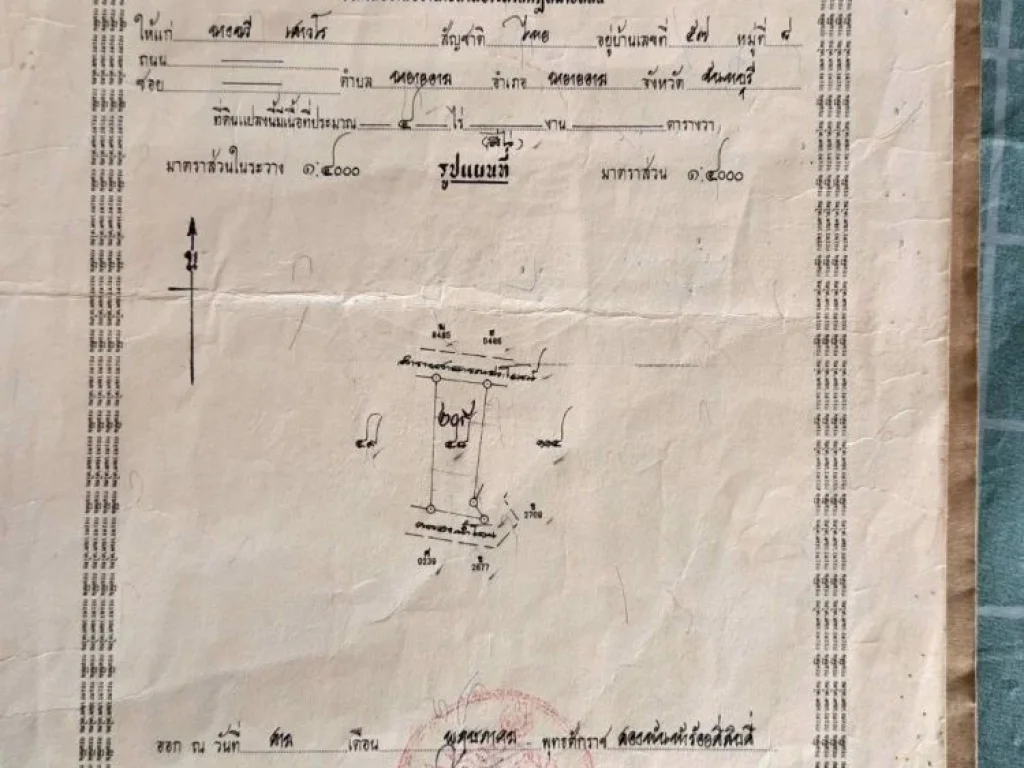 ให้แก่ นางฉวี เสาวโร สัญชาติ ไทย อยู่บ้านเลขที่ ๕๗ หมู่ที่ ๘
ถนน
ซอย ตำบล นายายอาม อำเภอ นายายอาม จังหวัด จันทบุรี
ที่ดินแปลงนี้มีเนื้อที่ประมาณ ๔ ไร่ งาน ตารางวา
(สี่ไร่)
มาตราส่วนในระวาง ๑:๔๐๐๐ รูปแผนที่ มาตราส่วน ๑:๔๐๐๐
น
8485 0486
๔๙ ๔๘ ๑๑๔
2709
0239 2677
ออก ณ วันที่ สาม เดือน พฤษภาคม พุทธศักราช สองพันห้าร้อยสี่สิบสี่